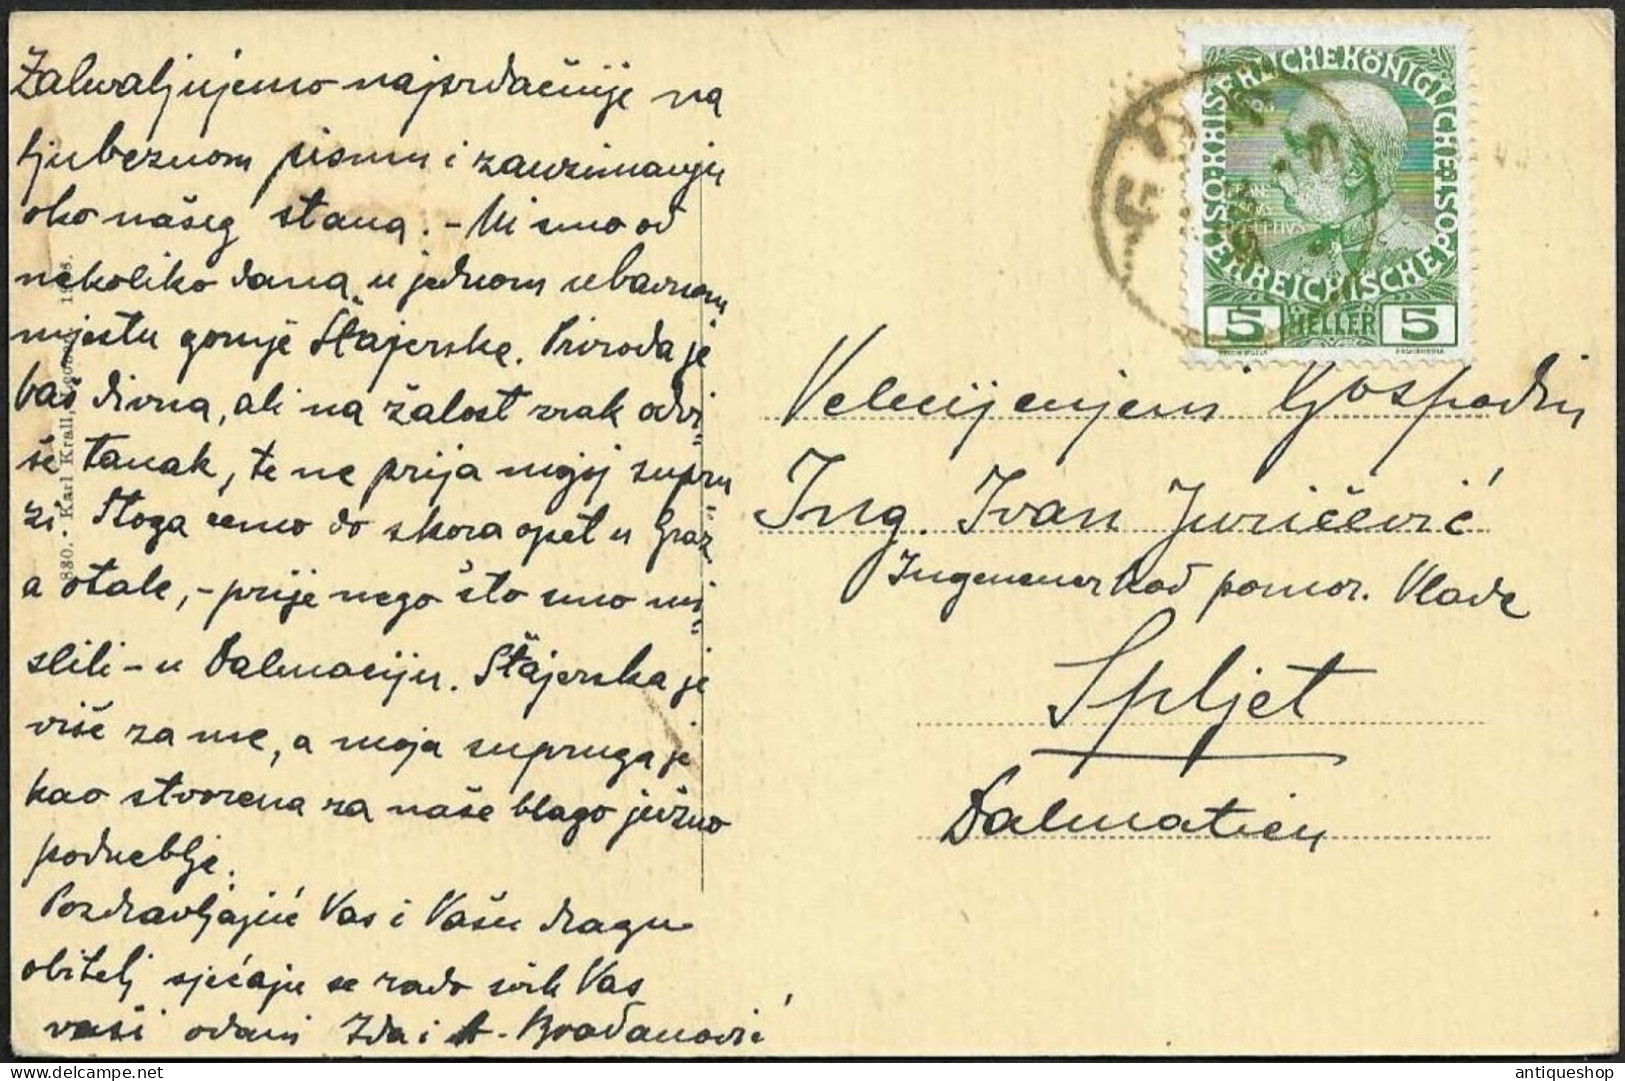 Zahvaljujemo najsrdačnije na
ljubeznom pismu i zauzimanju
oko našeg stana. - Mi smo od
nekoliko dana u jednom ubavnom
mjestu gornje Štajerske. Priroda je
baš divna, ali na žalost zrak odvi-
še tanak, te ne prija mojoj supru-
zi. Stoga ćemo do skora opet u Graz
a otale, - prije nego što smo mi-
slili - u Dalmaciju. Štajerska je
više za me, a moja supruga je
kao stvorena za naše blago južno
podneblje.
Pozdravljajuć Vas i Vašu dragu
obitelj sjećaju se rado svih Vas
vaši odani Ida i A. Bradanović
880. - Karl Krall,
KAISERLICHE KÖNIGLICHE ÖSTERREICHISCHE POST
5 HELLER 5
Velecijenjeni Gospodin
Ing. Ivan Juričević
Ingenener kod pomor. Vlade
Spljet
Dalmatien
antiqueshop